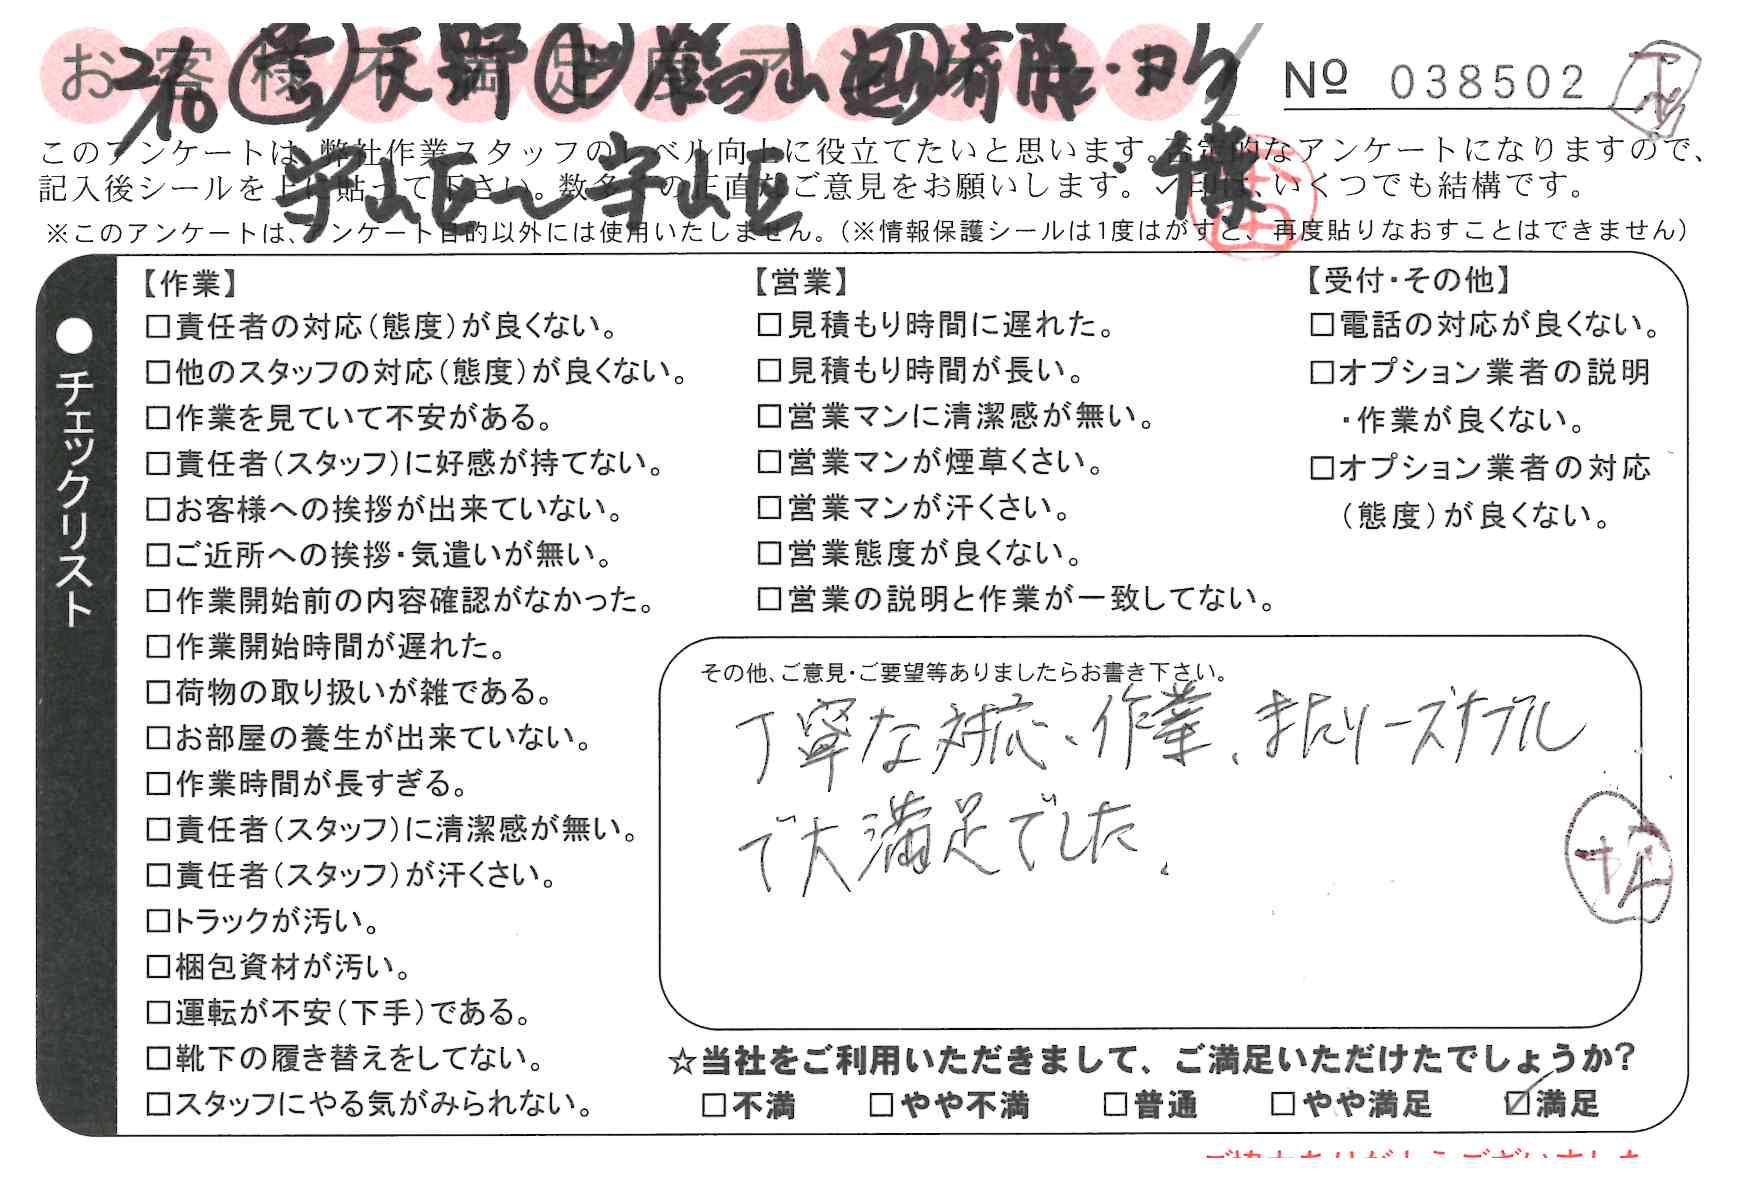 お客様不満足度アンケート
2/10 天野 鶴山 斎藤
№ 038502
このアンケートは、弊社作業スタッフのレベル向上に役立てたいと思います。否定的なアンケートになりますので、
記入後シールを上に貼って下さい。数多くの正直なご意見をお願いします。✓印は、いくつでも結構です。
守山区〜守山区 様
※このアンケートは、アンケート目的以外には使用いたしません。(※情報保護シールは1度はがすと、再度貼りなおすことはできません)
●チェックリスト
【作業】
□責任者の対応(態度)が良くない。
□他のスタッフの対応(態度)が良くない。
□作業を見ていて不安がある。
□責任者(スタッフ)に好感が持てない。
□お客様への挨拶が出来ていない。
□ご近所への挨拶・気遣いが無い。
□作業開始前の内容確認がなかった。
□作業開始時間が遅れた。
□荷物の取り扱いが雑である。
□お部屋の養生が出来ていない。
□作業時間が長すぎる。
□責任者(スタッフ)に清潔感が無い。
□責任者(スタッフ)が汗くさい。
□トラックが汚い。
□梱包資材が汚い。
□運転が不安(下手)である。
□靴下の履き替えをしてない。
□スタッフにやる気がみられない。
【営業】
□見積もり時間に遅れた。
□見積もり時間が長い。
□営業マンに清潔感が無い。
□営業マンが煙草くさい。
□営業マンが汗くさい。
□営業態度が良くない。
□営業の説明と作業が一致してない。
【受付・その他】
□電話の対応が良くない。
□オプション業者の説明
・作業が良くない。
□オプション業者の対応
(態度)が良くない。
その他、ご意見・ご要望等ありましたらお書き下さい。
丁寧な対応、作業、またリーズナブル
で大満足でした。
☆当社をご利用いただきまして、ご満足いただけたでしょうか?
□不満 □やや不満 □普通 □やや満足 ☑満足
ご協力ありがとうございました